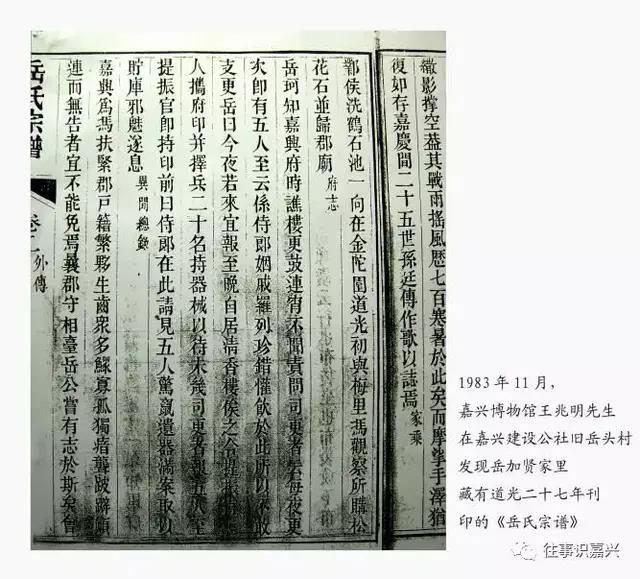 影撐空蓋其戰雨搖風歷七百寒暑於此矣而摩挲手澤猶
復如存嘉慶間二十五世孫廷傳作歌以誌焉 家乘
鄴侯洗鶴石池一向在金陀園道光初與梅里馮觀察所購松
花石並歸郡廟 府志
岳珂知嘉興府時譙樓更鼓連宵不聞責問司更者云每夜更
次即有五人至云係侍郎姻戚羅列珍錯懽飲於此所以不敢
支更岳曰今夜若來宜報至晚自居清香樓俟之令提振官
人攜府印并擇兵二十名持器械以待未幾司更者報五人至
提振官即持印前曰侍郎在此請見五人驚竄遺器滿案取以
貯庫邪魅遂息 異聞總錄
嘉興為馮扶緊郡戶籍繁夥生齒眾多鰥寡孤獨瘖聾跛躃顛
連而無告者宜不能免焉曩郡守相臺岳公嘗有志於斯矣會
岳氏宗譜 卷二 外傳
1983年11月,
嘉兴博物馆王兆明先生
在嘉兴建设公社旧岳头村
发现岳加贤家里
藏有道光二十七年刊
印的《岳氏宗谱》
往事识嘉兴